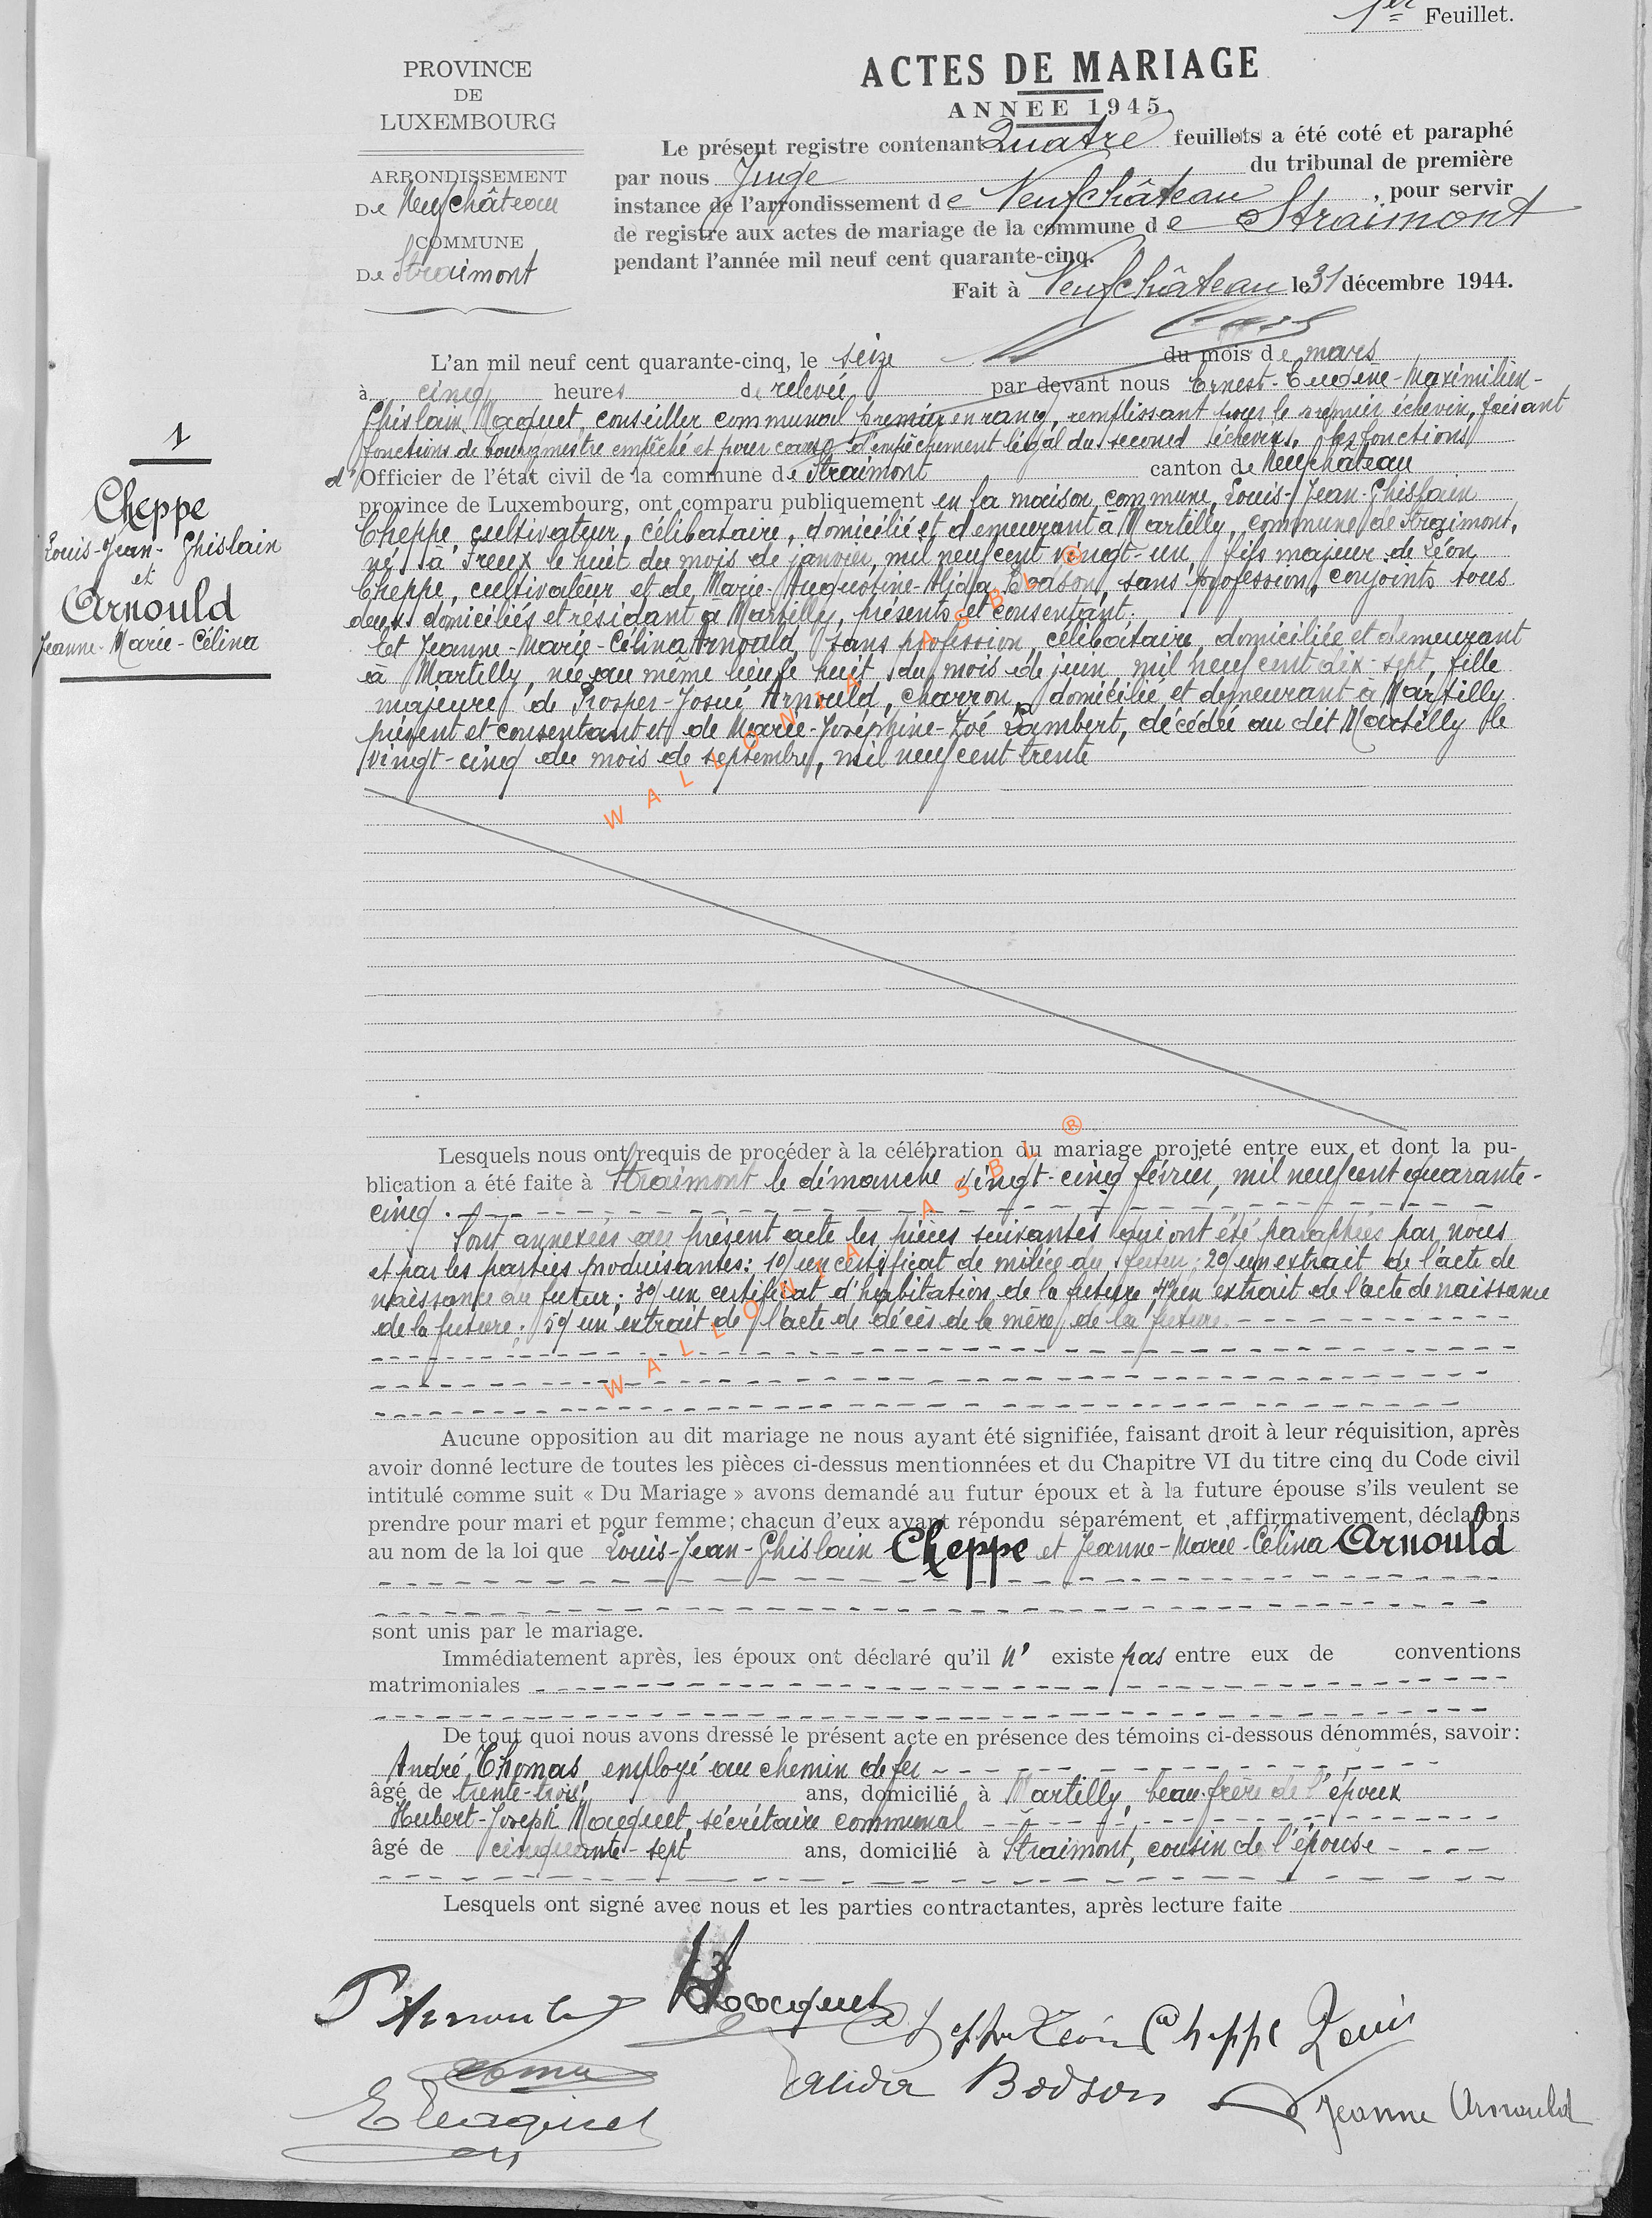 1er Feuillet.
PROVINCE
DE
LUXEMBOURG
ARRONDISSEMENT
De Neufchâteau
COMMUNE
De Straimont
ACTES DE MARIAGE
ANNEE 1945.
Le présent registre contenant Quatre feuillets a été coté et paraphé
par nous Juge du tribunal de première
instance de l'arrondissement de Neufchâteau, pour servir
de registre aux actes de mariage de la commune de Straimont
pendant l'année mil neuf cent quarante-cinq.
Fait à Neufchâteau le 31 décembre 1944.
1
Cheppe
Louis-Jean-Ghislain
et
Arnould
Jeanne-Marie-Célina
L'an mil neuf cent quarante-cinq, le seize du mois de mars
à cinq heures de relevée par devant nous Ernest-Eugène-Maximilien-
Ghislain Maquet, conseiller communal premier en rang, remplissant pour le premier échevin, faisant
fonctions de bourgmestre empêché et pour cause d'empêchement légal du second échevin, les fonctions
d'Officier de l'état civil de la commune de Straimont canton de Neufchâteau
province de Luxembourg, ont comparu publiquement en la maison commune, Louis-Jean-Ghislain
Cheppe, cultivateur, célibataire, domicilié et demeurant à Martilly, commune de Straimont,
né à Freux le huit du mois de janvier, mil neuf cent vingt-un, fils majeur de Léon
Cheppe, cultivateur et de Marie-Augustine-Alida Bodson, sans profession, conjoints tous
deux domiciliés et résidant à Martilly, présents et consentant.
Et Jeanne-Marie-Célina Arnould, sans profession, célibataire, domiciliée et demeurant
à Martilly, née au même lieu le huit du mois de juin, mil neuf cent dix-sept, fille
majeure de Prosper-Josué Arnould, charron, domicilié et demeurant à Martilly
présent et consentant et de Marie-Joséphine-Zoé Lambert, décédée au dit Martilly le
vingt-cinq du mois de septembre, mil neuf cent trente
WALLONIA ASBL ®
Lesquels nous ont requis de procéder à la célébration du mariage projeté entre eux et dont la pu-
blication a été faite à Straimont le dimanche vingt-cinq février, mil neuf cent quarante-
cinq.
Sont annexées au présent acte les pièces suivantes qui ont été paraphées par nous
et par les parties produisantes: 1º/ un certificat de milice du futur; 2º/ un extrait de l'acte de
naissance du futur; 3º/ un certificat d'habitation de la future, 4º/ un extrait de l'acte de naissance
de la future; 5º/ un extrait de l'acte de décès de la mère de la future.
WALLONIA ASBL ®
Aucune opposition au dit mariage ne nous ayant été signifiée, faisant droit à leur réquisition, après
avoir donné lecture de toutes les pièces ci-dessus mentionnées et du Chapitre VI du titre cinq du Code civil
intitulé comme suit « Du Mariage » avons demandé au futur époux et à la future épouse s'ils veulent se
prendre pour mari et pour femme; chacun d'eux ayant répondu séparément et affirmativement, déclarons
au nom de la loi que Louis-Jean-Ghislain Cheppe et Jeanne-Marie-Célina Arnould
sont unis par le mariage.
Immédiatement après, les époux ont déclaré qu'il n' existe pas entre eux de conventions
matrimoniales
De tout quoi nous avons dressé le présent acte en présence des témoins ci-dessous dénommés, savoir:
André Thomas, employé au chemin de fer
âgé de trente-trois ans, domicilié à Martilly, beau-frère de l'époux
Hubert-Joseph Macquet, sécrétaire communal
âgé de cinquante-sept ans, domicilié à Straimont, cousin de l'épouse
Lesquels ont signé avec nous et les parties contractantes, après lecture faite
P Arnould Macquet
Cheppe Léon Cheppe Louis
Alida Bodson Jeanne Arnould
E Macquet